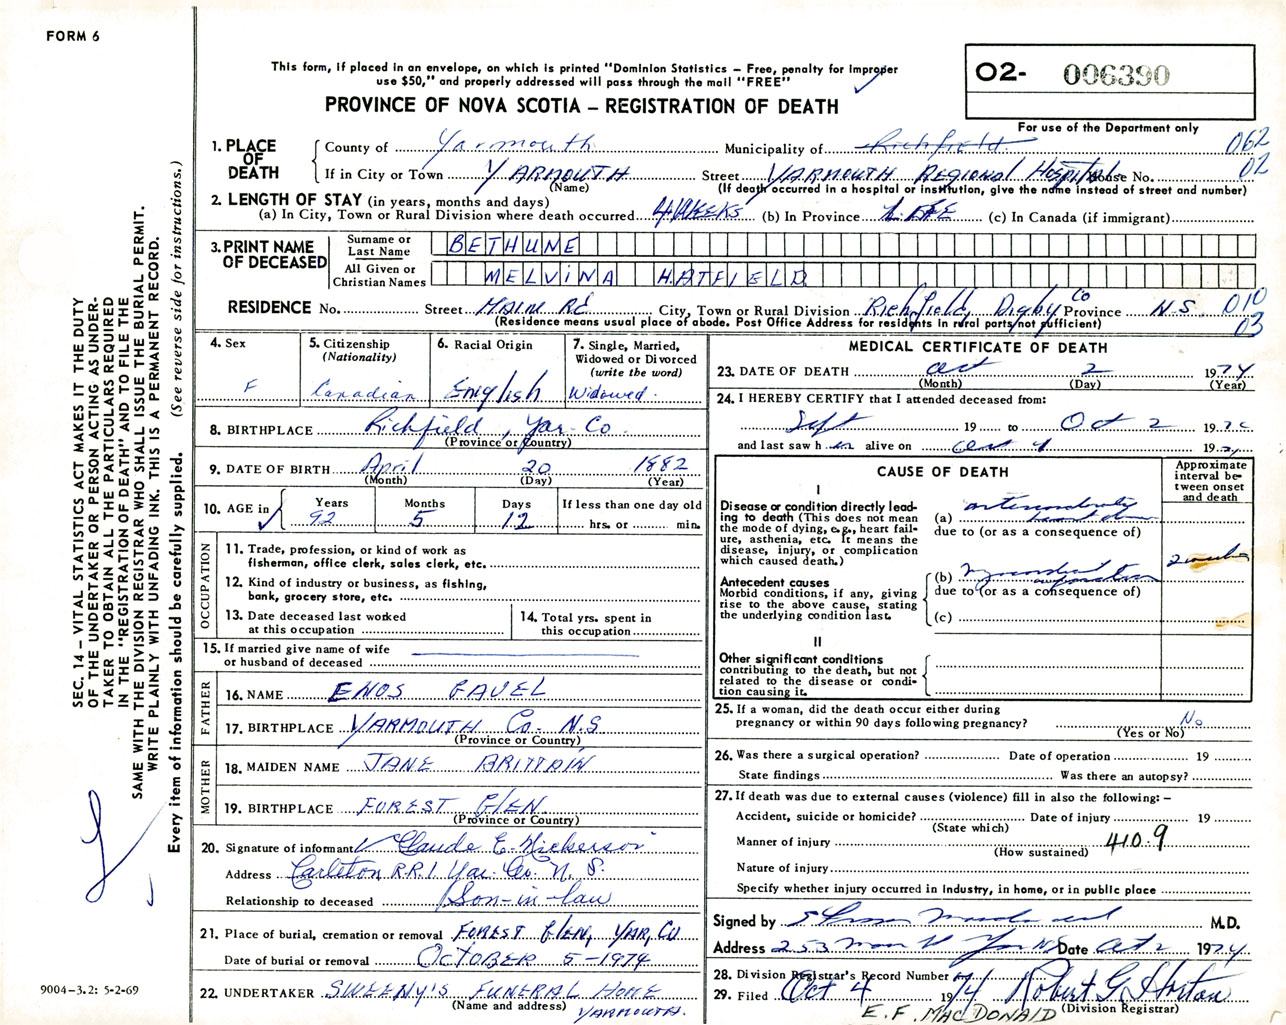 FORM 6
This form, if placed in an envelope, on which is printed "Dominion Statistics – Free, penalty for improper
use $50," and properly addressed will pass through the mail "FREE"
PROVINCE OF NOVA SCOTIA – REGISTRATION OF DEATH
02- 006390
For use of the Department only
1. PLACE OF DEATH
County of Yarmouth Municipality of Richfield 062
If in City or Town YARMOUTH Street YARMOUTH REGIONAL Hospital House No. 02
(Name) (If death occurred in a hospital or institution, give the name instead of street and number)
2. LENGTH OF STAY (in years, months and days)
(a) In City, Town or Rural Division where death occurred 4 WEEKS (b) In Province LIFE (c) In Canada (if immigrant)
3. PRINT NAME OF DECEASED
Surname or Last Name BETHUNE
All Given or Christian Names MELVINA HATFIELD
RESIDENCE No. Street MAIN RD City, Town or Rural Division Richfield, Digby Co Province N.S 010
(Residence means usual place of abode. Post Office Address for residents in rural parts not sufficient) 03
4. Sex F
5. Citizenship (Nationality) Canadian
6. Racial Origin English
7. Single, Married, Widowed or Divorced (write the word) Widowed.
8. BIRTHPLACE Richfield, Yar. Co.
(Province or Country)
9. DATE OF BIRTH April 20 1882
(Month) (Day) (Year)
10. AGE in Years 92 Months 5 Days 12 If less than one day old hrs. or min.
OCCUPATION
11. Trade, profession, or kind of work as
fisherman, office clerk, sales clerk, etc.
12. Kind of industry or business, as fishing,
bank, grocery store, etc.
13. Date deceased last worked
at this occupation
14. Total yrs. spent in
this occupation
15. If married give name of wife
or husband of deceased
FATHER
16. NAME ENOS GAVEL
17. BIRTHPLACE YARMOUTH Co. N.S
(Province or Country)
MOTHER
18. MAIDEN NAME JANE BRITTAIN
19. BIRTHPLACE FOREST GLEN
(Province or Country)
20. Signature of informant Claude E. Nickerson
Address Carleton R.R.1 Yar. Co. N. S.
Relationship to deceased Son-in-law
21. Place of burial, cremation or removal FOREST GLEN, YAR, CO
Date of burial or removal OCTOBER 5-1974
22. UNDERTAKER SWEENY'S FUNERAL HOME
(Name and address) YARMOUTH.
MEDICAL CERTIFICATE OF DEATH
23. DATE OF DEATH Oct 2 1974
(Month) (Day) (Year)
24. I HEREBY CERTIFY that I attended deceased from:
Sept 19 to Oct 2 19
and last saw h er alive on Oct 19
CAUSE OF DEATH
Approximate interval between onset and death
I
Disease or condition directly leading to death (This does not mean the mode of dying, e.g., heart failure, asthenia, etc. It means the disease, injury, or complication which caused death.)
(a) heart
due to (or as a consequence of)
Antecedent causes
Morbid conditions, if any, giving rise to the above cause, stating the underlying condition last.
(b) myocardial 2 weeks
due to (or as a consequence of)
(c)
II
Other significant conditions
contributing to the death, but not related to the disease or condition causing it.
25. If a woman, did the death occur either during
pregnancy or within 90 days following pregnancy? No
(Yes or No)
26. Was there a surgical operation? Date of operation 19
State findings Was there an autopsy?
27. If death was due to external causes (violence) fill in also the following: –
Accident, suicide or homicide? Date of injury 19
(State which)
Manner of injury 410.9
(How sustained)
Nature of injury
Specify whether injury occurred in industry, in home, or in public place
Signed by M.D.
Address 253 Main St Date Oct 2 1974
28. Division Registrar's Record Number
29. Filed Oct 4 1974 Robert G Horton
E. F. MACDONALD (Division Registrar)
SEC. 14 – VITAL STATISTICS ACT MAKES IT THE DUTY
OF THE UNDERTAKER OR PERSON ACTING AS UNDER-
TAKER TO OBTAIN ALL THE PARTICULARS REQUIRED
IN THE "REGISTRATION OF DEATH" AND TO FILE THE
SAME WITH THE DIVISION REGISTRAR WHO SHALL ISSUE THE BURIAL PERMIT.
WRITE PLAINLY WITH UNFADING INK. THIS IS A PERMANENT RECORD.
Every item of information should be carefully supplied. (See reverse side for instructions.)
9004-3.2: 5-2-69